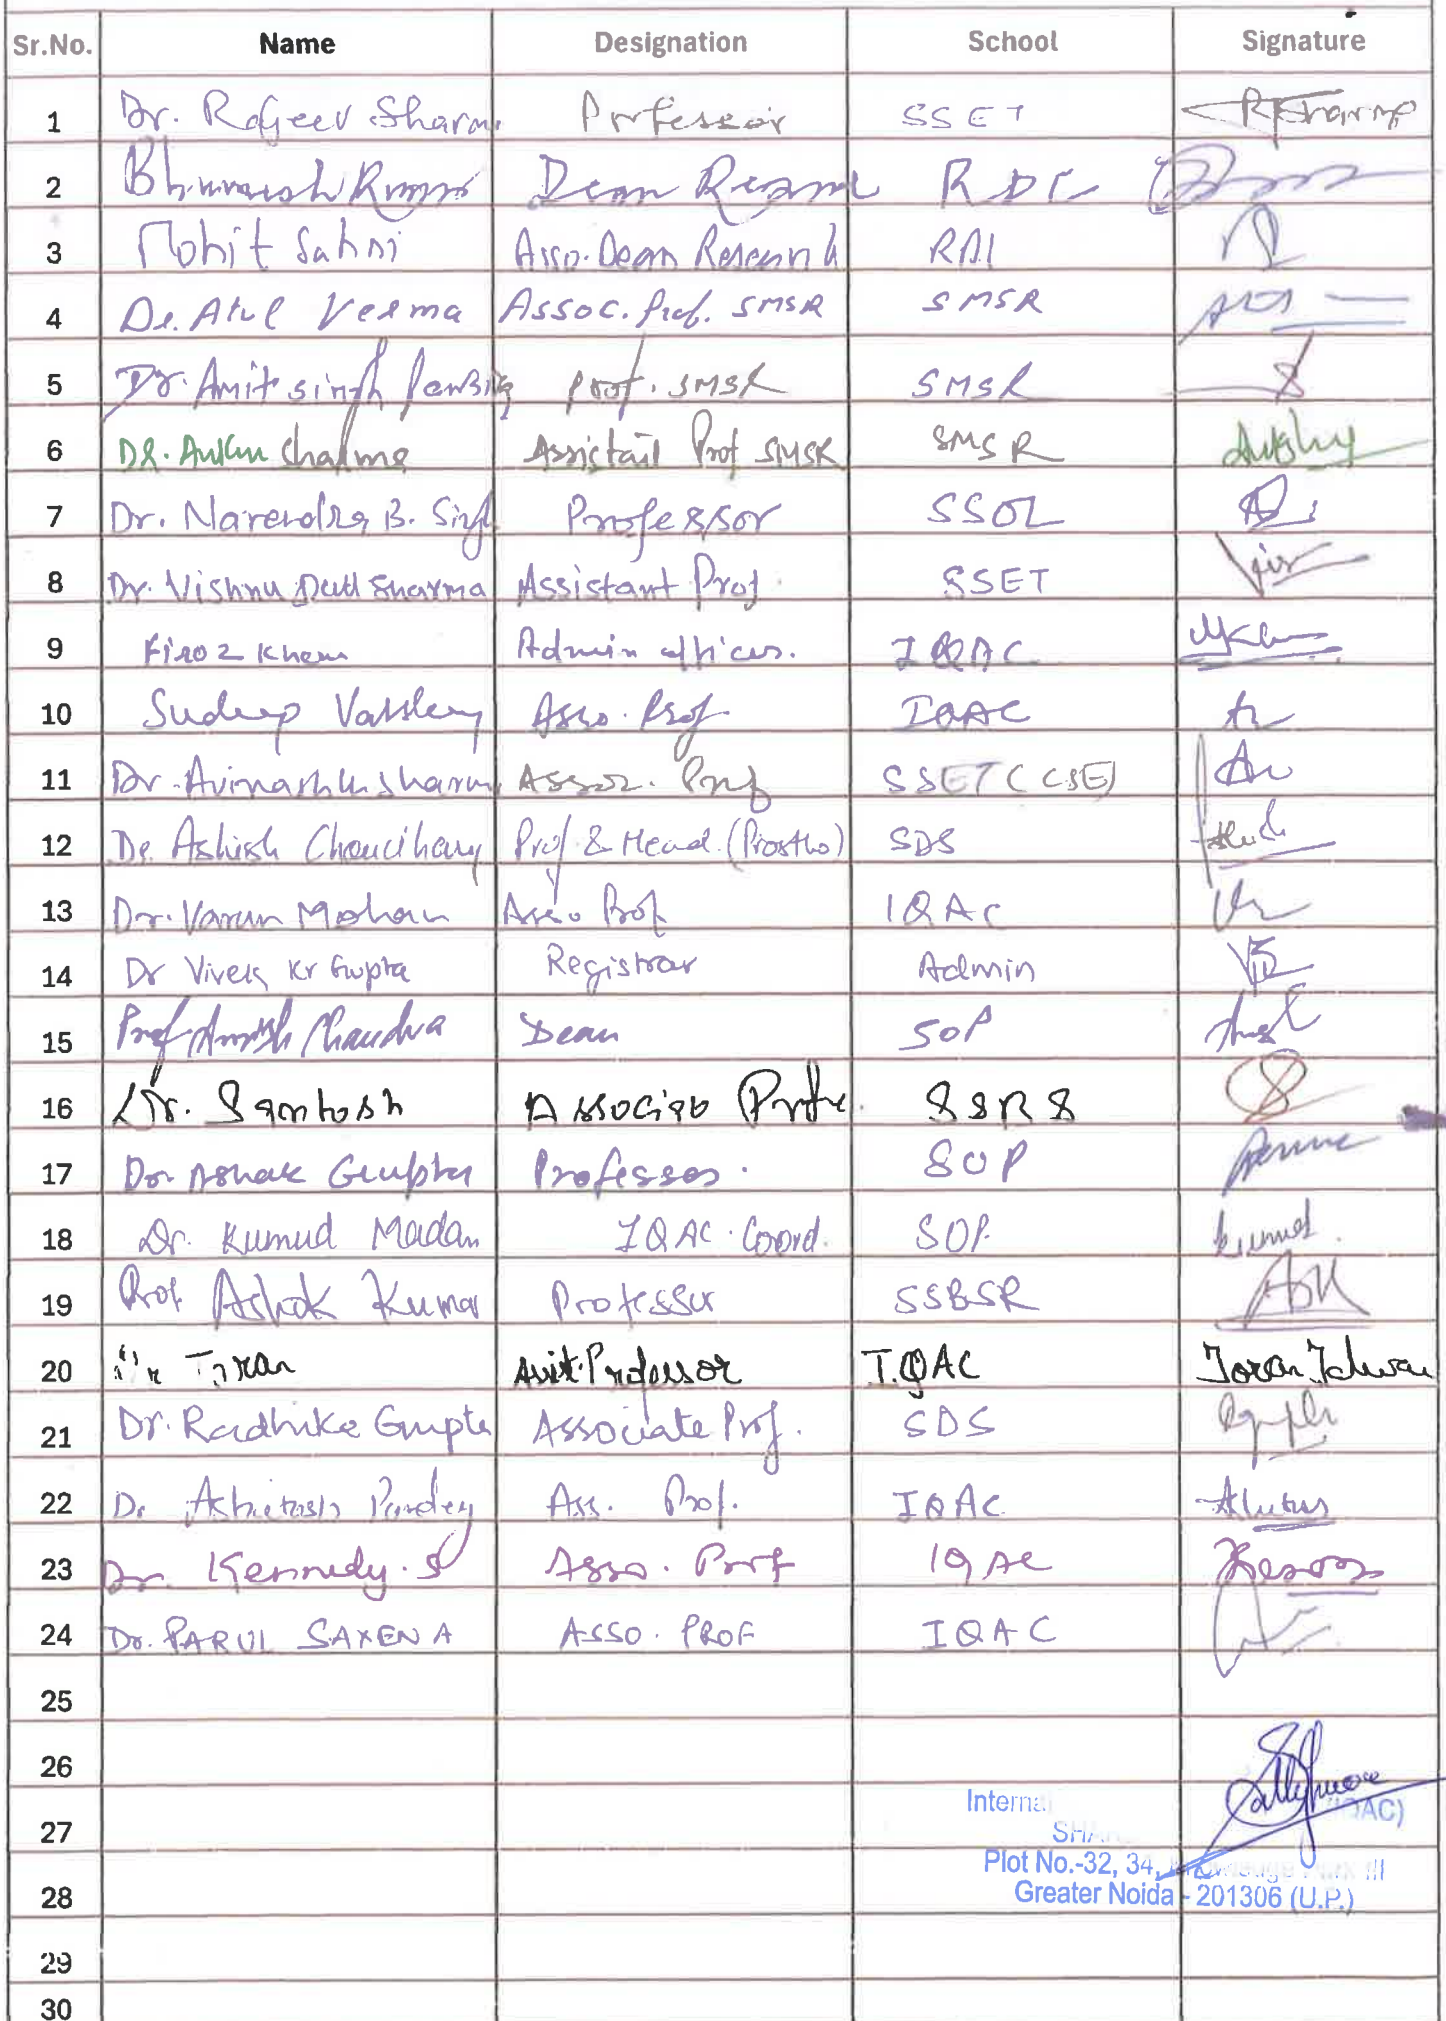 Sr.No. Name Designation School Signature
1 Dr. Rajeev Sharma Professor SSET RSharma
2 Bhuvnesh Kumar Dean Research RDC
3 Mohit Sahni Asso. Dean Research RDC
4 Dr. Atul Verma Assoc. Prof. SMSR SMSR
5 Dr. Amit singh Prof. SMSR SMSR
6 DR. Ankur Sharma Assistant Prof SMSR SMSR
7 Dr. Narendra B. Singh Professor SSOL
8 Dr. Vishnu Dutt Sharma Assistant Prof. SSET
9 Firoz Khan Admin officer. IQAC
10 Sudeep Varshney Asso. Prof IQAC
11 Dr. Avinash K. Sharma Assoc. Prof SSET (CSE)
12 Dr. Ashish Choudhary Prof. & Head. (Prostho) SDS
13 Dr. Varun Mohan Asso Prof IQAC
14 Dr Vivek Kr Gupta Registrar Admin
15 Prof. Amrish Chandra Dean SOP
16 Dr. Santosh Associate Profe. SSRS
17 Dr Ashok Gupta Professor. SOP
18 Dr. Kumud Madan IQAC. Coord. SOP. Kumud
19 Prof Ashok Kumar Professor SSBSR
20 Dr Toran Asist. Professor IQAC Toran
21 Dr. Radhika Gupta Associate Prof. SDS
22 Dr Ashutosh Pandey Ass. Prof. IQAC
23 Dr. Kennedy. S Asso. Prof IQAC
24 Dr. PARUL SAXENA ASSO. PROF IQAC
25
26
27
Internal IQAC)
SHA
Plot No.-32, 34, III
28
Greater Noida - 201306 (U.P.)
29
30